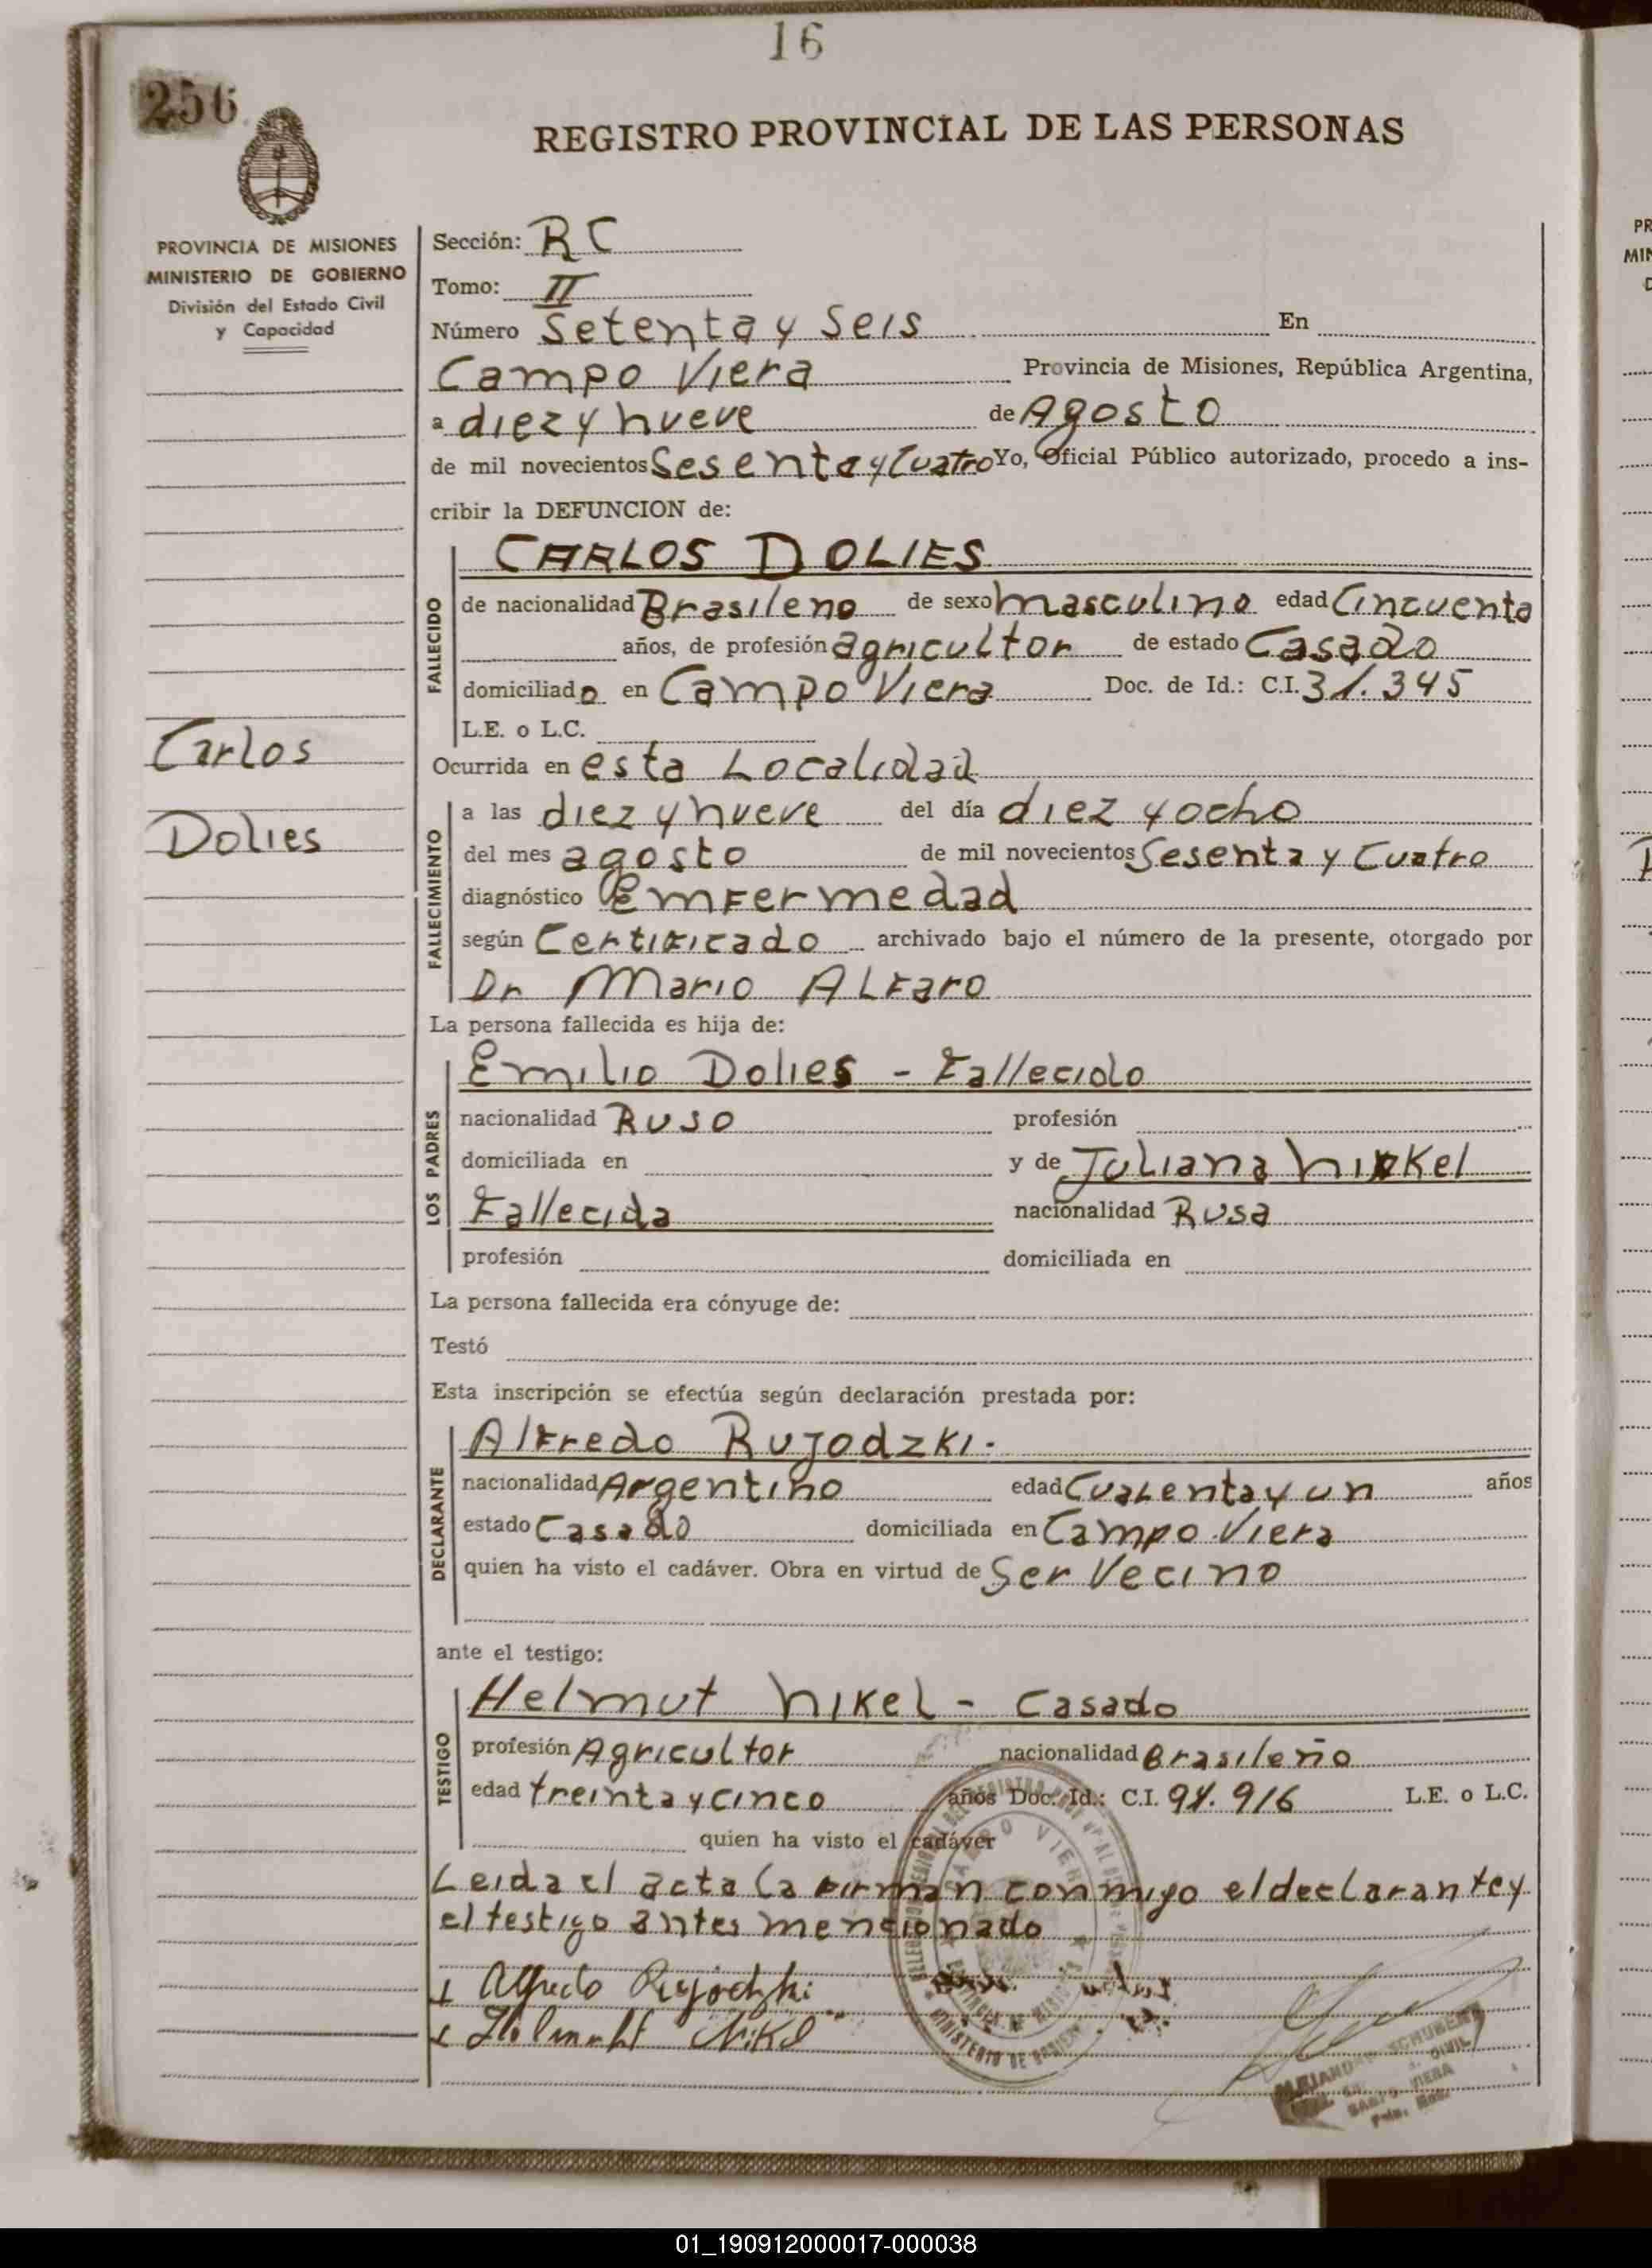 16
256
REGISTRO PROVINCIAL DE LAS PERSONAS
PROVINCIA DE MISIONES
MINISTERIO DE GOBIERNO
División del Estado Civil
y Capacidad
Carlos
Dolies
Sección: RC
Tomo: II
Número Setenta y Seis En
Campo Viera Provincia de Misiones, República Argentina,
a diez y nueve de Agosto
de mil novecientos Sesenta y Cuatro Yo, Oficial Público autorizado, procedo a ins-
cribir la DEFUNCION de:
FALLECIDO
CARLOS DOLIES
de nacionalidad Brasileno de sexo masculino edad Cincuenta
años, de profesión agricultor de estado Casado
domiciliado en Campo Viera Doc. de Id.: C.I. 31.345
L.E. o L.C.
Ocurrida en esta Localidad
FALLECIMIENTO
a las diez y nueve del día diez y ocho
del mes agosto de mil novecientos Sesenta y Cuatro
diagnóstico Emfermedad
según Certificado archivado bajo el número de la presente, otorgado por
Dr Mario Alfaro
La persona fallecida es hija de:
LOS PADRES
Emilio Dolies - Fallecido
nacionalidad Ruso profesión
domiciliada en y de Juliana
Fallecida nacionalidad Rusa
profesión domiciliada en
La persona fallecida era cónyuge de:
Testó
Esta inscripción se efectúa según declaración prestada por:
DECLARANTE
Alfredo Rujodzki.
nacionalidad Argentino edad Cuarenta y un años
estado Casado domiciliada en Campo Viera
quien ha visto el cadáver. Obra en virtud de Ser Vecino
ante el testigo:
TESTIGO
Helmut Nikel - Casado
profesión Agricultor nacionalidad Brasileño
edad treinta y cinco años Doc. Id.: C.I. 94.916 L.E. o L.C.
quien ha visto el cadáver
Leida el acta la firman conmigo el declarante y
el testigo antes mencionado
Alfredo Rujodzki
Nikel
CAMPO VIERA
MINISTERIO DE
SCHUBERT
CIVIL
CAMPO VIERA
01_190912000017-000038